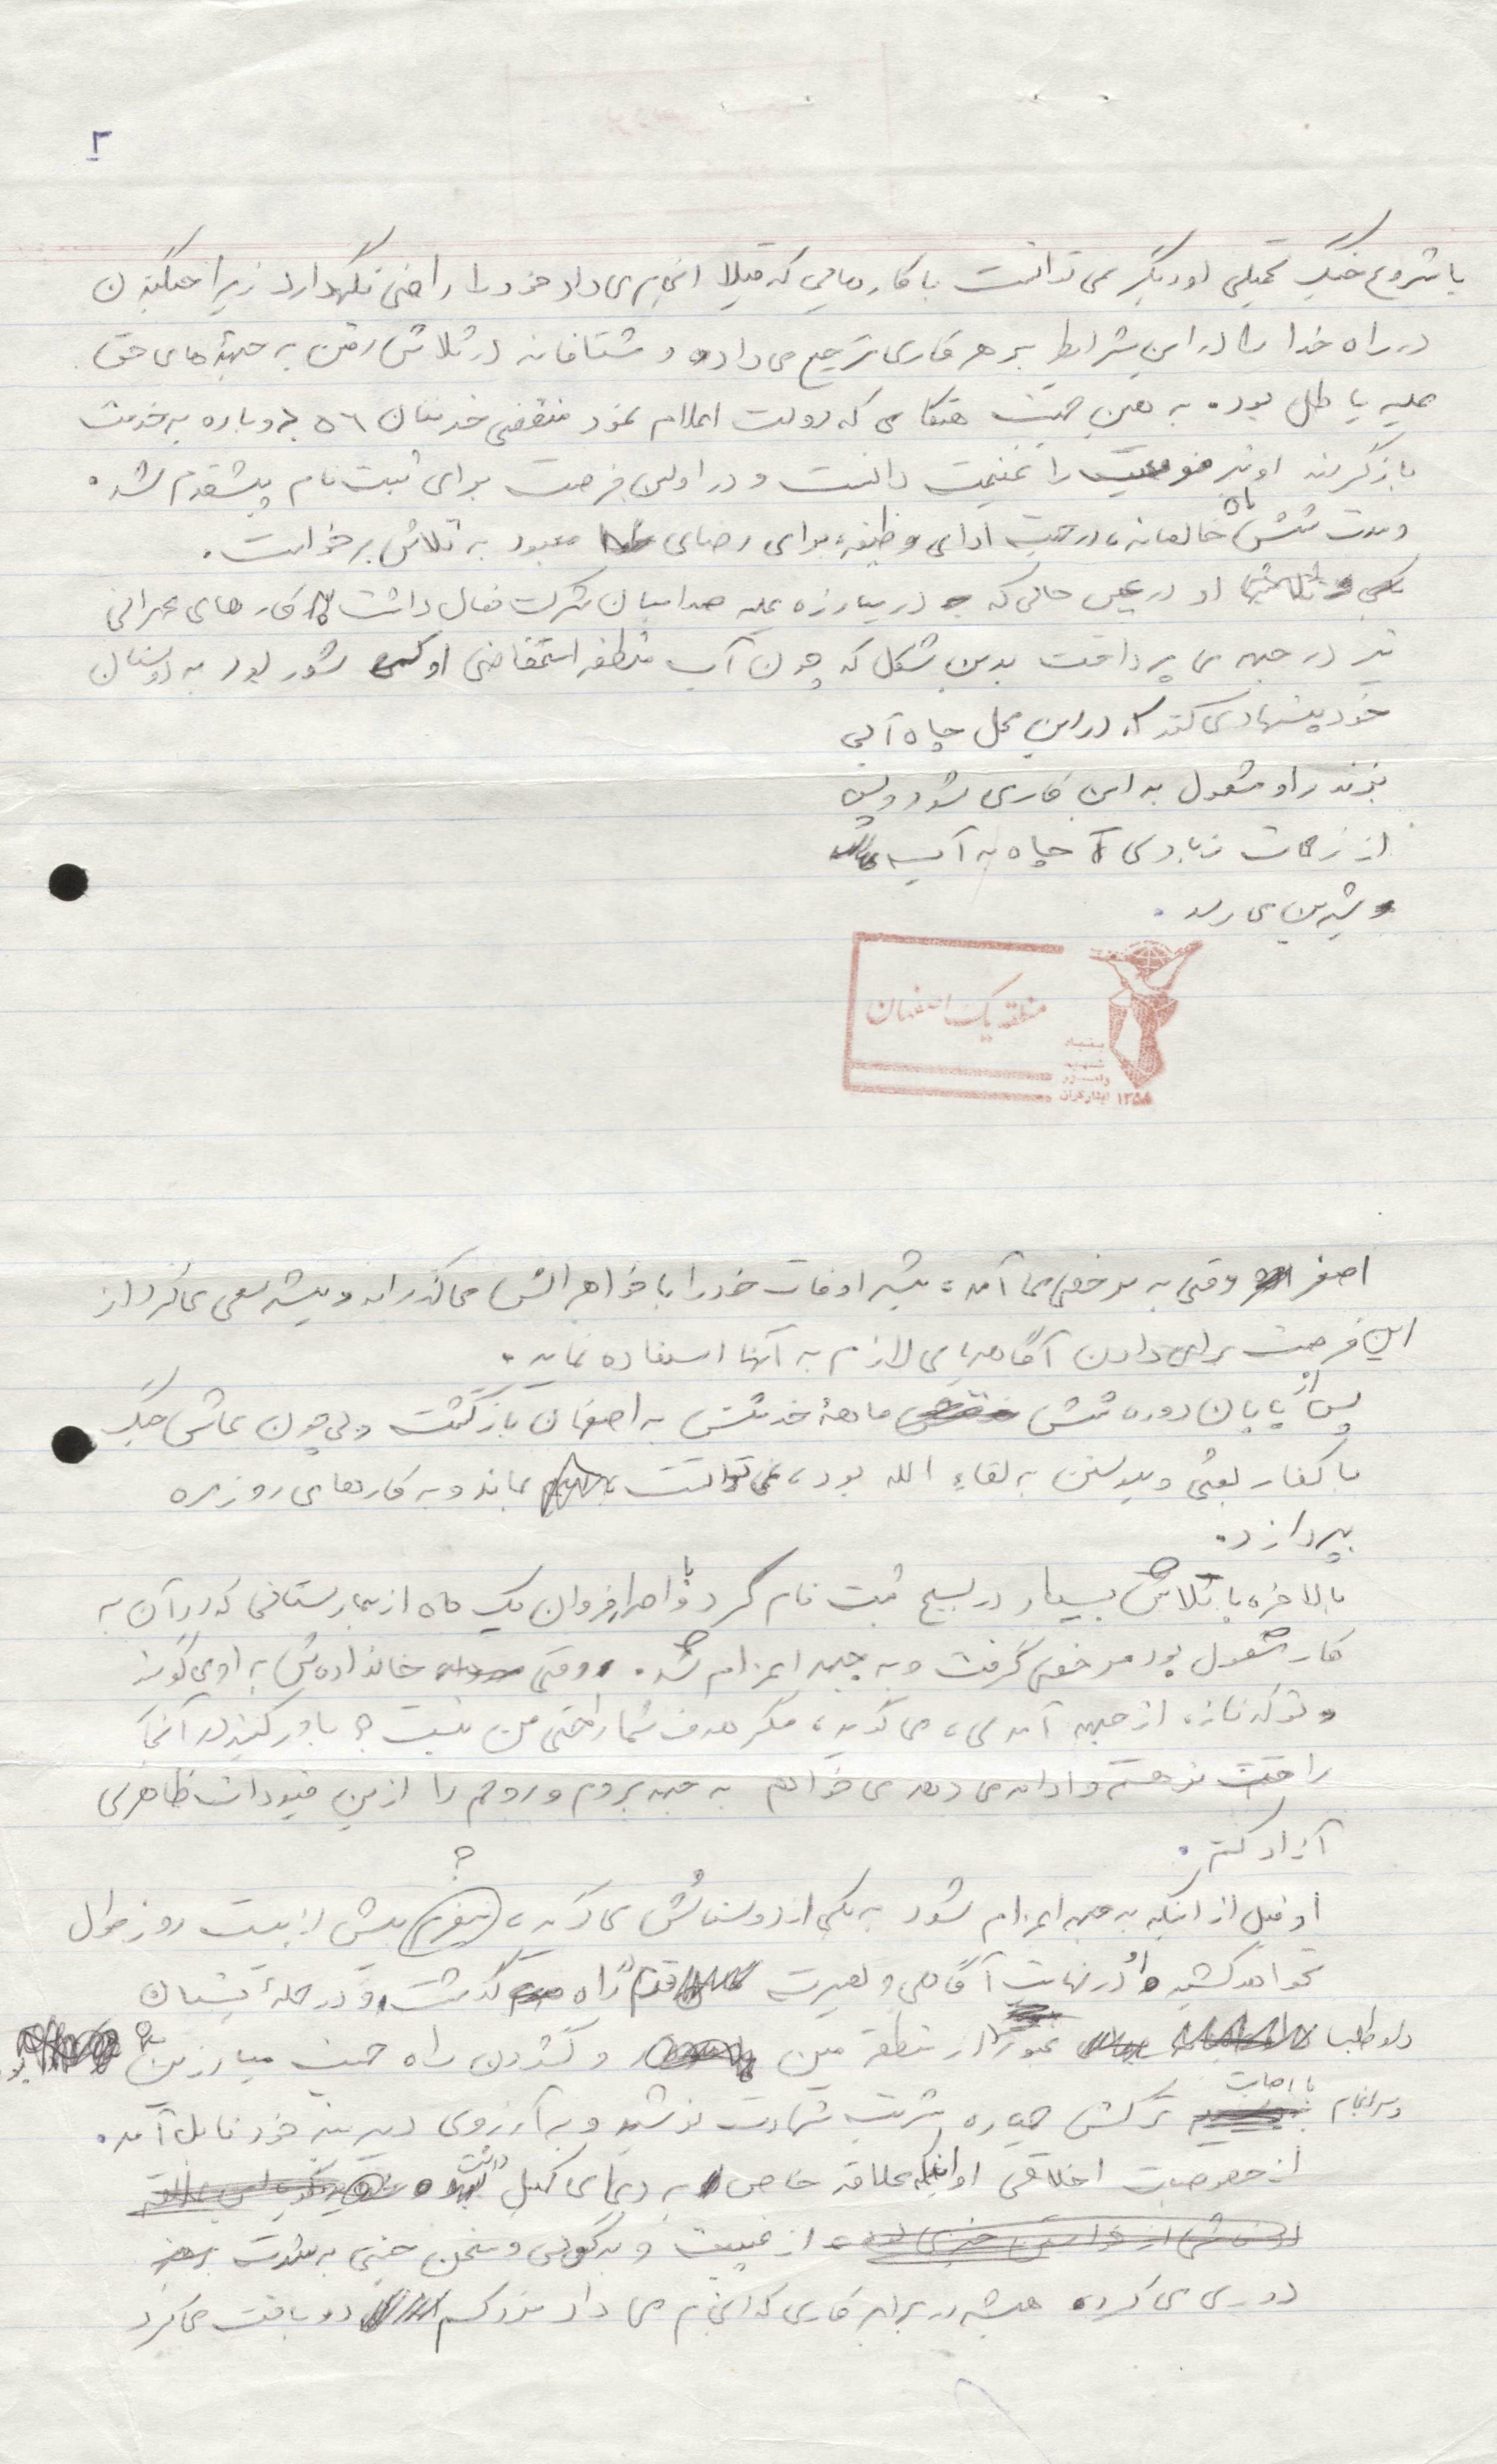 ۲
با شروع جنگ تحمیلی او دیگر نمی توانست با کارهایی که قبلا انجام می داد خود را راضی نگهدارد زیرا جنگیدن
در راه خدا را در این شرایط بر هر کاری ترجیح می داد و شتافانه در تلاش رفتن به جبهه های حق
علیه باطل بود. به همین جهت هنگامی که دولت اعلام نمود منقضی خدمتان ۵۶ دوباره به خدمت
بازگردند او نیز موقعیت را غنیمت دانست و در اولین فرصت برای ثبت نام پیشقدم شد.
و مدت شش ماه خالصانه، در جهت ادای وظیفه، برای رضای معبود به تلاش برخواست.
او در عین حالی که در مبارزه علیه صدامیان شرکت فعال داشت کارهای عمرانی
نیز در جبهه می پرداخت بدین شکل که چون آب منطقه استحفاظی او کمی شور بود به دوستان
خود پیشنهاد می کند که در این محل چاه آبی
بزنند و او مشغول به این کار می شود و پس
از زحمات زیادی چاه به آب
شیرین می رسد.
منطقه یک اصفهان
بنیاد
شهید
و امور
ایثارگران ۱۳۵۸
اصغر وقتی به مرخصی می آمد، بیشتر اوقات خود را با خواهرانش می گذراند و بیشتر سعی می کرد از
این فرصت برای دادن آگاهیهای لازم به آنها استفاده نماید.
پس از پایان دوره شش ماههٔ خدمتش به اصفهان بازگشت ولی چون عاشق جنگ
با کفار بعثی و پیوستن به لقاء الله بود، نمی توانست بماند و به کارهای روزمره
بپردازد.
بالاخره با تلاش بسیار در بسیج ثبت نام کرد و با اصرار فراوان یک ماه از بیمارستانی که در آن به
کار مشغول بود مرخصی گرفت و به جبهه اعزام شد. وقتی خانواده ش به او می گویند
تو که تازه از جبهه آمدی، می گوید، مگر هدف شما راحتی من نیست؟ باور کنید در آنجا
راحت تر هستم و ادامه می دهد می خواهم به جبهه بروم و روحم را از این قیودات ظاهری
آزاد کنم.
؟
او قبل از اینکه به جبهه اعزام شود به یکی از دوستانش می گوید، بیش از بیست روز طول
نخواهد کشید او در نهایت آگاهی و بصیرت راه گذشت و در حملهٔ بستان
داوطلبانه عبور از منطقه مین و گشودن راه جهت مبارزین
و سرانجام با اصابت ترکش خمپاره شربت شهادت نوشید و به آرزوی دیرینه خود نایل آمد.
از خصوصیات اخلاقی او اینکه علاقه خاص به دعای کمیل داشت
از غیبت و بدگویی و سخن چینی به شدت
دوری می کرد، همیشه در برابر کاری که انجام می داد مزد کم دریافت می کرد